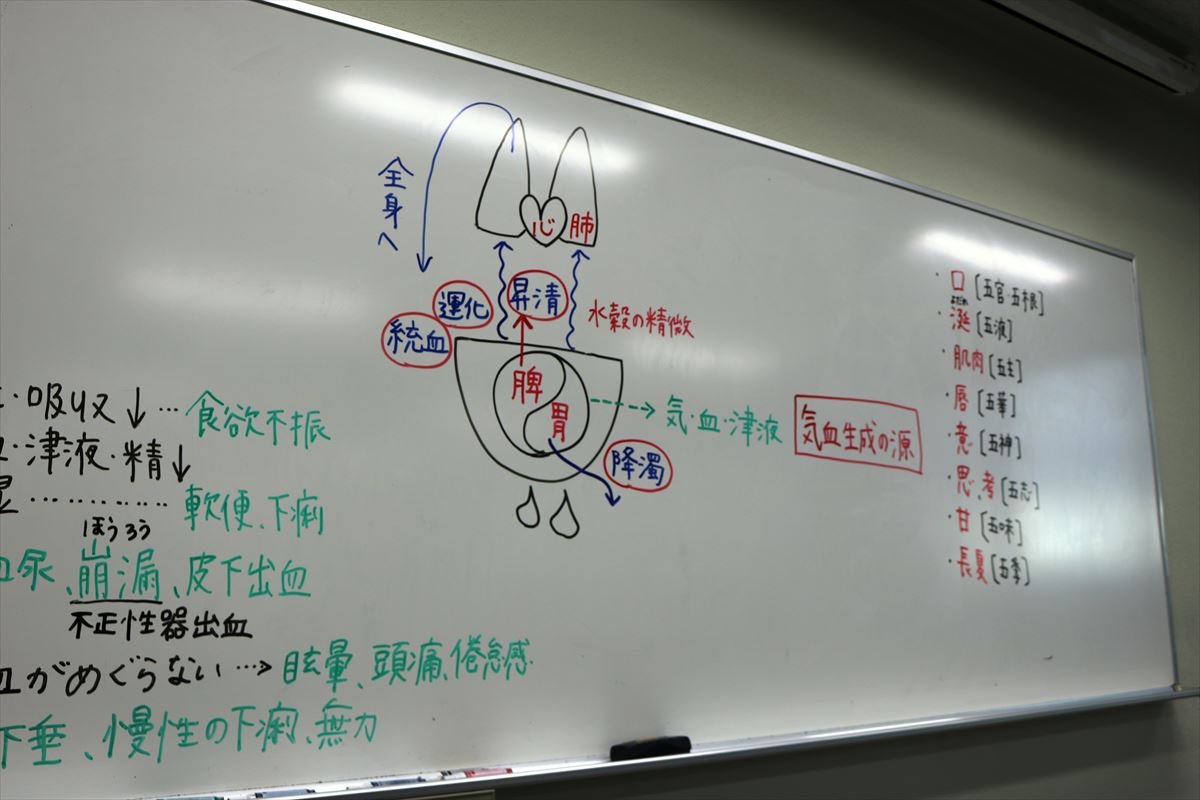 全身へ
心 肺
運化
昇清
統血
水穀の精微
脾
胃
気・血・津液
気血生成の源
降濁
・吸収↓…食欲不振
・津液・精↓
…………軟便、下痢
ほうろう
血尿、崩漏、皮下出血
不正性器出血
血がめぐらない…→眩暈、頭痛、倦怠感
下垂、慢性の下痢、無力
・口[五官・五根]
よだれ
・涎[五液]
・肌肉[五主]
・唇[五華]
・意[五神]
・思、考[五志]
・甘[五味]
・長夏[五季]